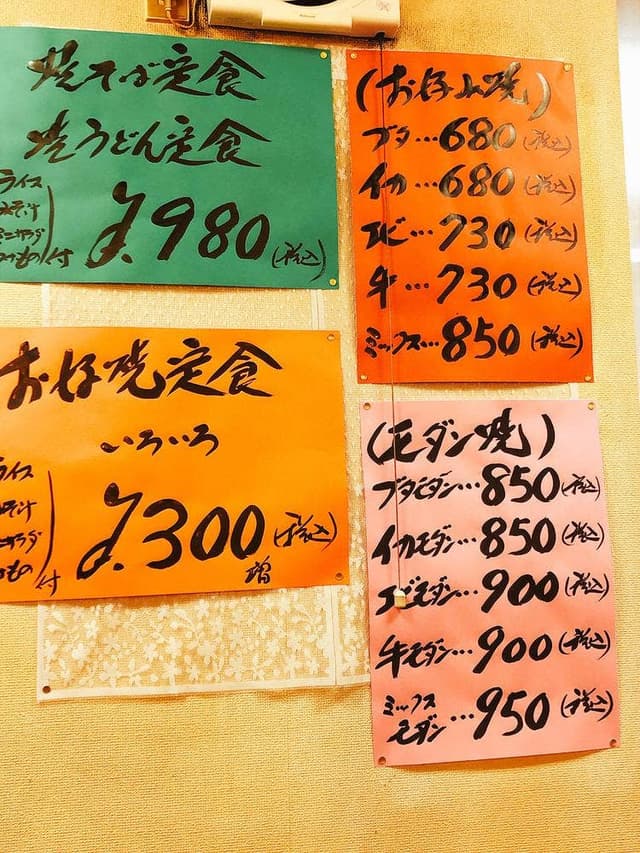 焼そば定食
焼うどん定食
ライス
みそ汁
ミニサラダ
つけもの 付
¥.980(税込)
お好焼定食
いろいろ
ライス
みそ汁
ミニサラダ
つけもの 付
¥.300(税込)
増
(お好み焼)
ブタ…680(税込)
イカ…680(税込)
エビ…730(税込)
牛…730(税込)
ミックス…850(税込)
(モダン焼)
ブタモダン…850(税込)
イカモダン…850(税込)
エビモダン…900(税込)
牛モダン…900(税込)
ミックス
モダン…950(税込)